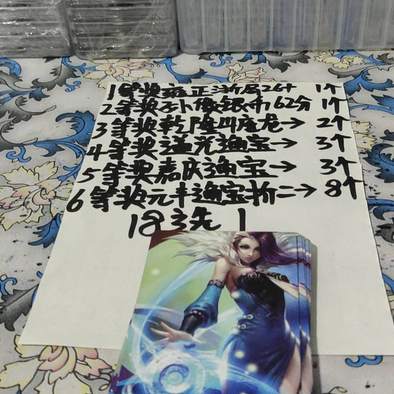 1等奖雍正浙局26+ 1个
2等奖孙像银币62分 1个
3等奖乾隆四庹龙→ 2个
4等奖道光通宝→ 3个
5等奖嘉庆通宝→ 3个
6等奖元丰通宝折二→ 8个
18选1